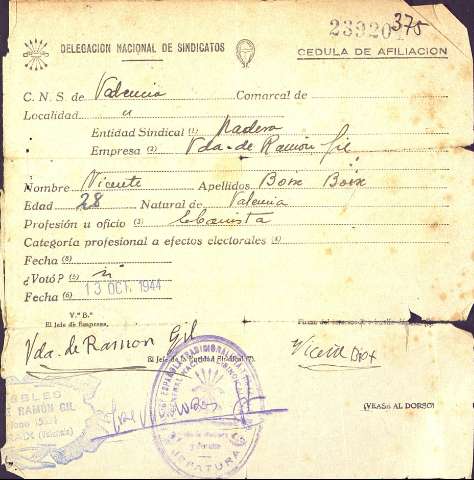 239204 375
DELEGACIÓN NACIONAL DE SINDICATOS
CEDULA DE AFILIACION
C. N. S. de Valencia Comarcal de
Localidad u
Entidad Sindical (1) Madera
Empresa (2) Vda. de Ramón Gil
Nombre Vicente Apellidos Boix Boix
Edad 28 Natural de Valencia
Profesión u oficio (3) Ebanista
Categoría profesional a efectos electorales (4)
Fecha (5)
¿Votó? (5) si
Fecha (6) 13 OCT. 1944
V.º B.º
El Jefe de Empresa,
Vda. de Ramon Gil
El Jefe de la Entidad Sindical (7),
Vicente Boix
RAMÓN GIL
(Valencia)
JEFATURA
(VEASE AL DORSO)